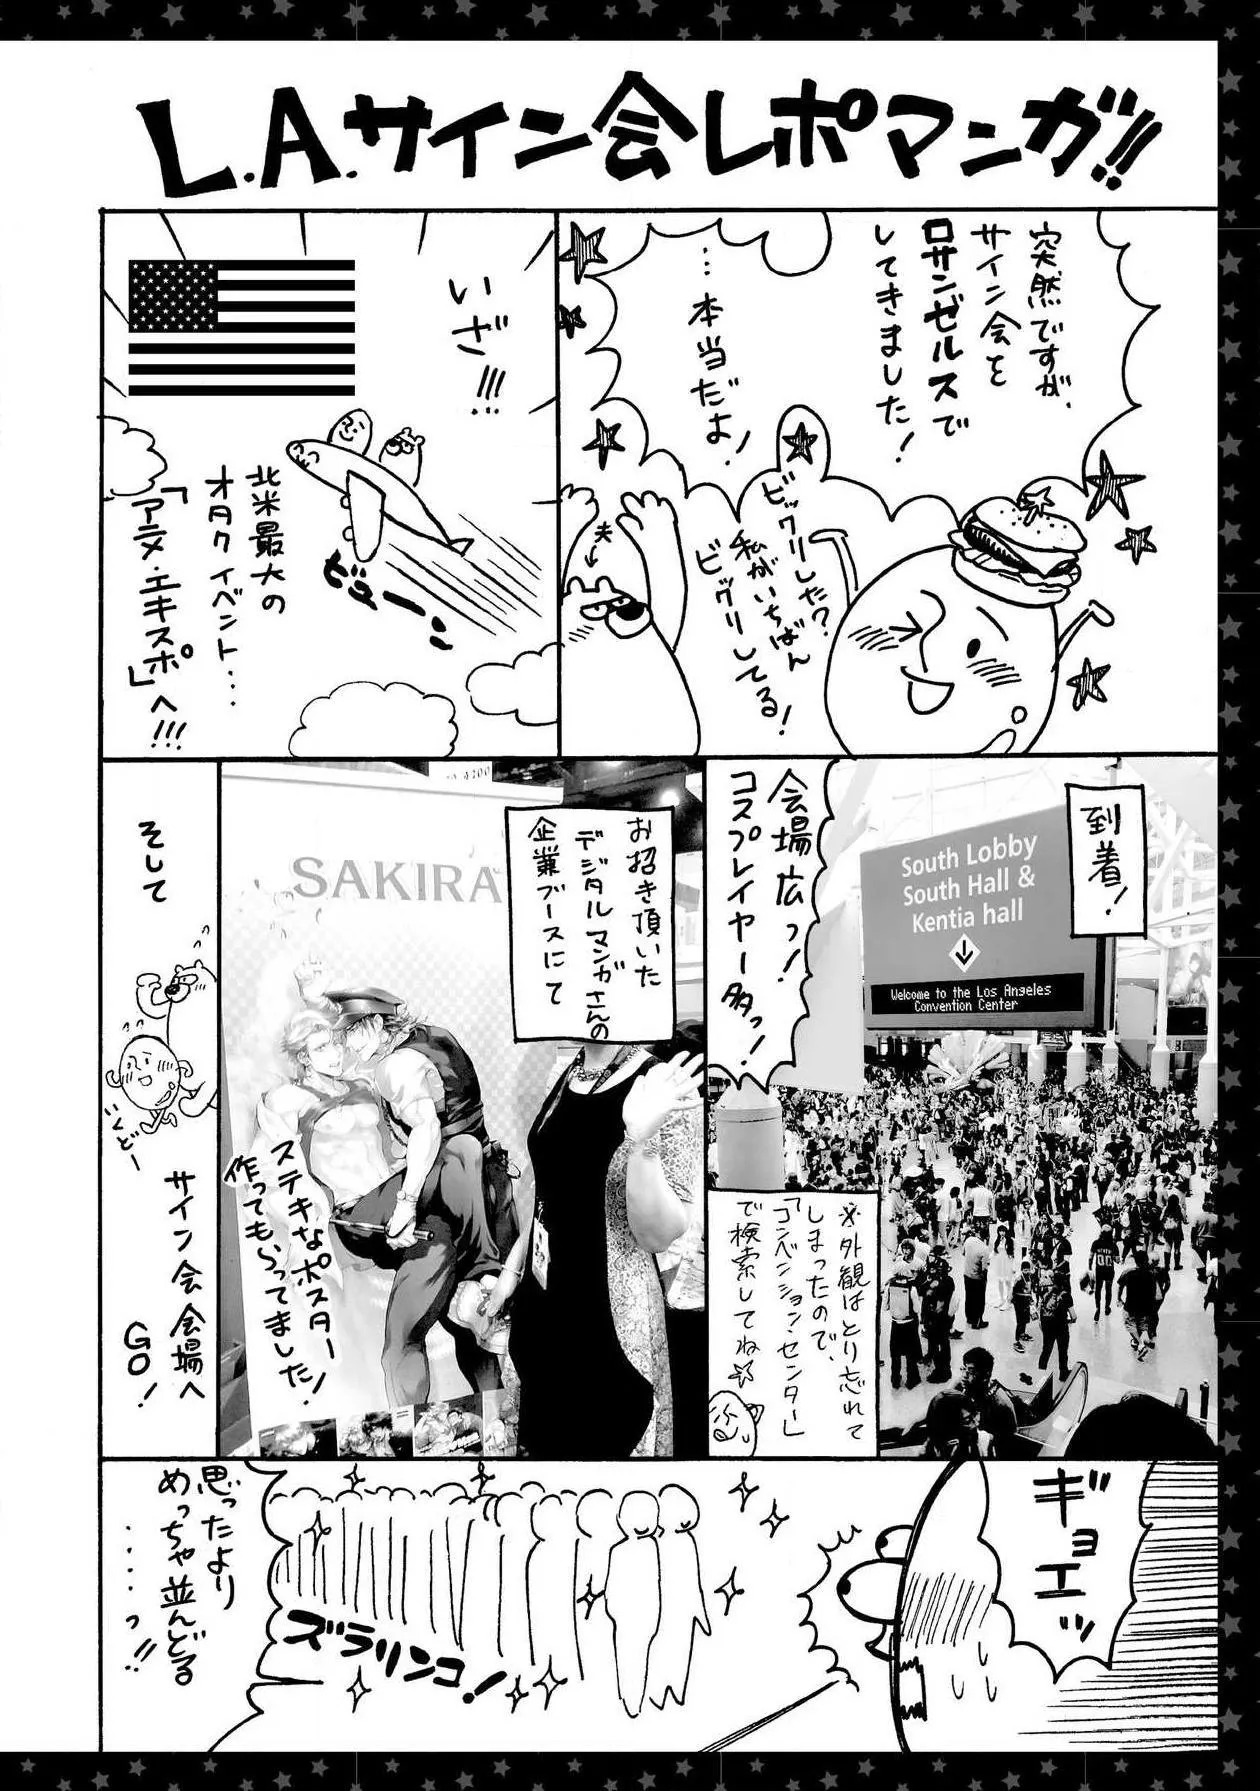 L.A.サイン会レポマンガ!!
突然ですが、
サイン会を
ロサンゼルスで
してきました!
…本当だよ!
ビックリした?
私がいちばん
ビックリしてる!
夫
いざ!!!
ビューン
北米最大の
オタクイベント…
「アニメ・エキスポ」へ!!!
到着!
South Lobby
South Hall &
Kentia hall
Welcome to the Los Angeles
Convention Center
会場広っ!
コスプレイヤー多っ!
※外観はとり忘れて
しまったので、
「コンベンション・センター」
で検索してね☆
お招き頂いた
デジタルマンガさんの
企業ブースにて
SAKIRA
ステキなポスター
作ってもらってました!
そして
いくどー
サイン会会場へ
GO!
ギョエッ
ズラリンコ!
思ったより
めっちゃ並んどる
……っ!!